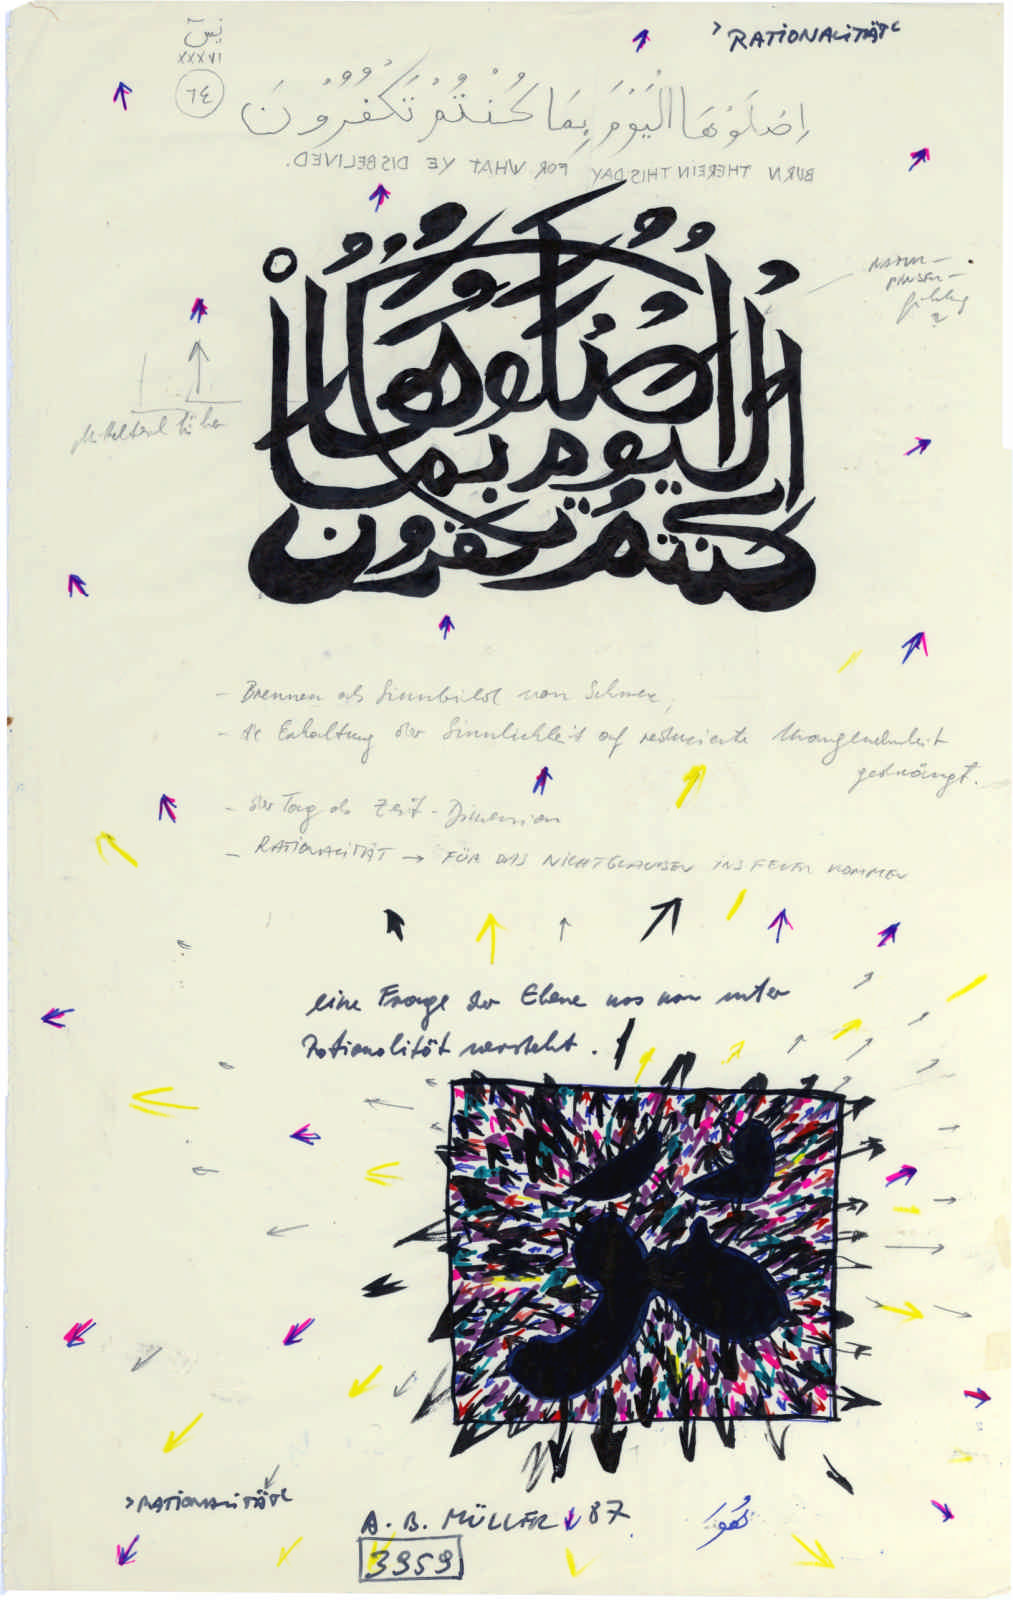 ›RATIONALITÄT‹
يٰسٓ
XXXVI
٦٤
اِصْلَوْهَا الْيَوْمَ بِمَا كُنْتُمْ تَكْفُرُونَ
BURN THEREIN THIS DAY FOR WHAT YE DISBELIVED.
اصلوها
اليوم بما
كنتم تكفرون
- Brennen als Sinnbild von
- die Erhaltung der Sinnlichkeit auf reduzierte Unangenehmheit
gedrängt.
- der Tag als Zeit-Dimension
- RATIONALITÄT → FÜR DAS NICHTGLAUBEN INS FEUER KOMMEN
eine Frage der Ebene was man unter
Rationalität versteht.
›RATIONALITÄT‹
A. B. MÜLLER 87
3959